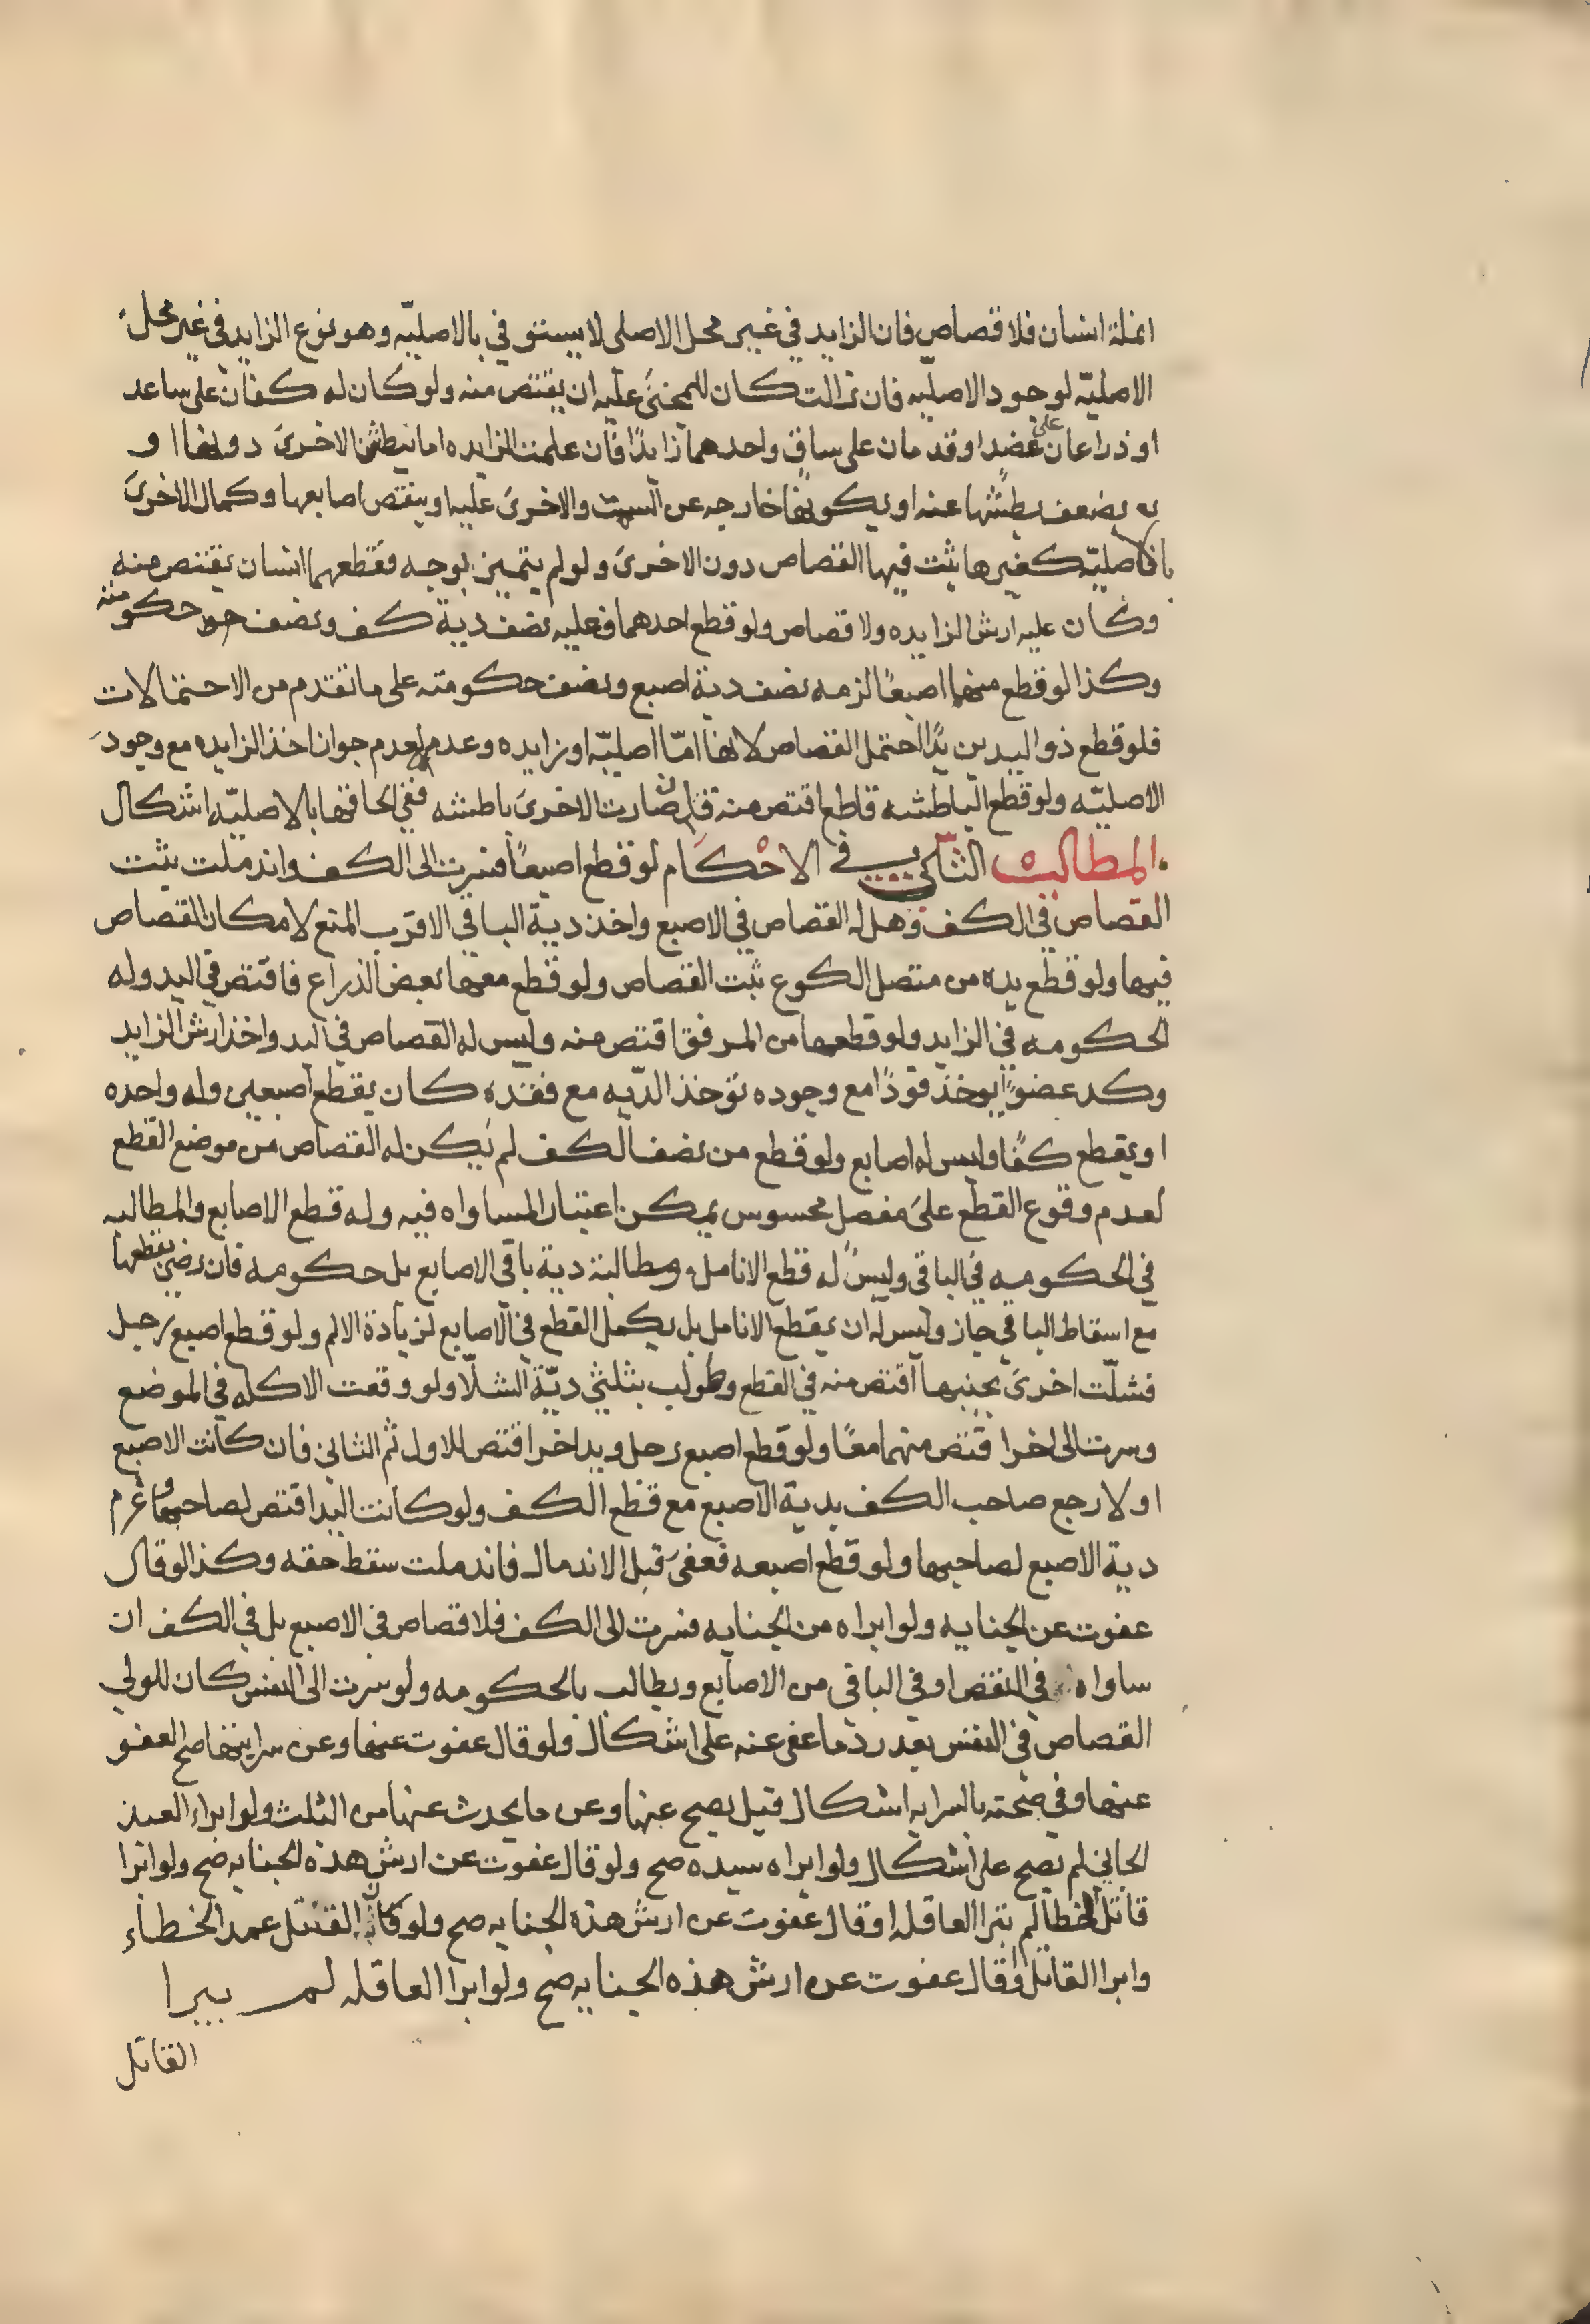 انملة انسان فلا قصاص فان الزايد في غير محل الاصلى لا يستوفي بالاصليّه وهو نوع الزايد في غير محل
الاصليّه لوجود الاصليه فان زالت كان للمجنى عليه ان يقتص منه ولو كان له كفان على ساعد
او ذراعان على عضد او قدمان على ساق واحدهما زايدًا فان علمت الزايده اما ببطش الاخرىَ دونها او
يضعف بطشها عنه او يكونها خارجه عن السمت والاخرىَ عليه او بنقص اصابعها وكمال الاخرىَ
فالاصليّه كغيرها يثبت فيها القصاص دون الاخرىَ ولو لم يتميز بوجه فقطعهما انسان يقتص منه
وكان عليه ارش الزايده ولا قصاص ولو قطع احدهما فعليه نصف دية كف ونصف حكومته
وكذا لو قطع منهما اصبعًا لزمه نصف دية اصبع ونصف حكومته على ما تقدم من الاحتمالات
فلو قطع ذو اليدين يدًا احتمل القصاص لانها امّا اصليّه او زايده وعدمه لعدم جواز اخذ الزايده مع وجود
الاصليّه ولو قطع الباطشه قاطع اقتص منه فان صارت الاخرىَ باطشه ففي الحاقها بالاصليّه اشكال
المطلب الثاني في الاحْكَام لو قطع اصبعًا فسرت الى الكف واندملت يثبت
القصاص في الكف وهل له القصاص في الاصبع واخذ دية الباقي الاقرب المنع لامكان القصاص
فيها ولو قطع يده من متصل الكوع ثبت القصاص ولو قطع معها بعض الذراع فاقتص في اليد وله
الحكومه في الزايد ولو قطعها من المرفق اقتص منه وليس له القصاص في اليد واخذ ارش الزايد
وكل عضوٍ يوخذ قودًا مع وجوده توخذ الدّيه مع فقده كان يقطع اصبعين وله واحده
او يقطع كفًا وليس له اصابع ولو قطع من نصف الكف لم يكن له القصاص من موضع القطع
لعدم وقوع القطع علىَ مفصل محسوس يمكن اعتبار المساواه فيه وله قطع الاصابع والمطالبه
في الحكومه في الباقى وليس له قطع الانامل ومطالبة دية باقي الاصابع بل حكومه فان رضى بقطعها
مع اسقاط الباقي جاز وليس له ان يقطع الانامل بل يكمل القطع في الاصابع لزيادة الالم ولو قطع اصبع رجل
فشلّت اخرىَ بجنبها اقتص منه في القطع وطولب بثلثي ديّة الشلّا ولو وقعت الاكله في الموضع
وسرت الى اخرا قتص منهما معًا ولو قطع اصبع رجل ويد اخر اقتص للاول ثم الثانى فان كانت الاصبع
اولا رجع صاحب الكف بدية الاصبع مع قطع الكف ولو كانت اليد اقتص لصاحبها وغرم
دية الاصبع لصاحبها ولو قطع اصبعه فعفىَ قبل الاندمال فاندملت سقط حقه وكذا لو قال
عفوت عن الجنايه ولو ابراه من الجنايه فسرت الى الكف فلا قصاص في الاصبع بل في الكف ان
ساواه في النقص او في الباقى من الاصابع ويطالب بالحكومه ولو سرت الى النفس كان للولي
القصاص في النفس بعد رد ما عفى عنه على اشكال ولو قال عفوت عنها وعن سرايتها صح العفو
عنها وفي صحته بالسرايه اشكال قيل يصح عنها وعن ما يحدث عنها من الثلث ولو ابراء العبد
الجانى لم يصح على اشكال ولو ابراه سيده صح ولو قال عفوت عن ارش هذه الجنايه صح ولو ابرا
قاتل الخطا لم تبرا العاقله او قال عفوت عن ارش هذه الجنايه صح ولو كان القتل عمد الخطاء
وابرا القاتل او قال عفوت عن ارش هذه الجنايه صح ولو ابرا العاقله لم يبرا
القاتل